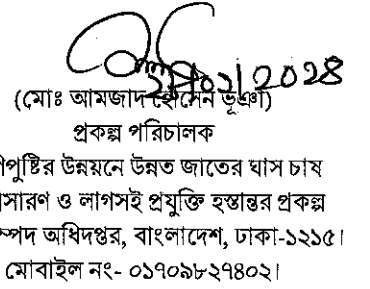 (মোঃ আমজাদ হোসেন ভূঞা)
প্রকল্প পরিচালক
পুষ্টির উন্নয়নে উন্নত জাতের ঘাস চাষ
সারণ ও লাগসই প্রযুক্তি হস্তান্তর প্রকল্প
ম্পদ অধিদপ্তর, বাংলাদেশ, ঢাকা-১২১৫।
মোবাইল নং- ০১৭০৯৮২৭৪০২।